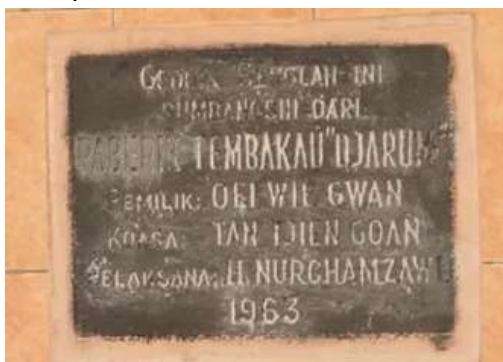 GEDUNG SEKOLAH INI
SUMBANGSIH DARI
TEMBAKAU "DJARUM"
PEMILIK: OEI WIE GWAN
KUASA: TAN TJIEN GOAN
PELAKSANA:
1963